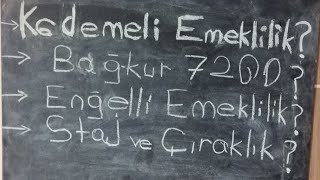 → Kademeli Emeklilik?
→ Bağ-kur 7200?
→ Engelli Emeklilik?
→ Staj ve Çıraklık?